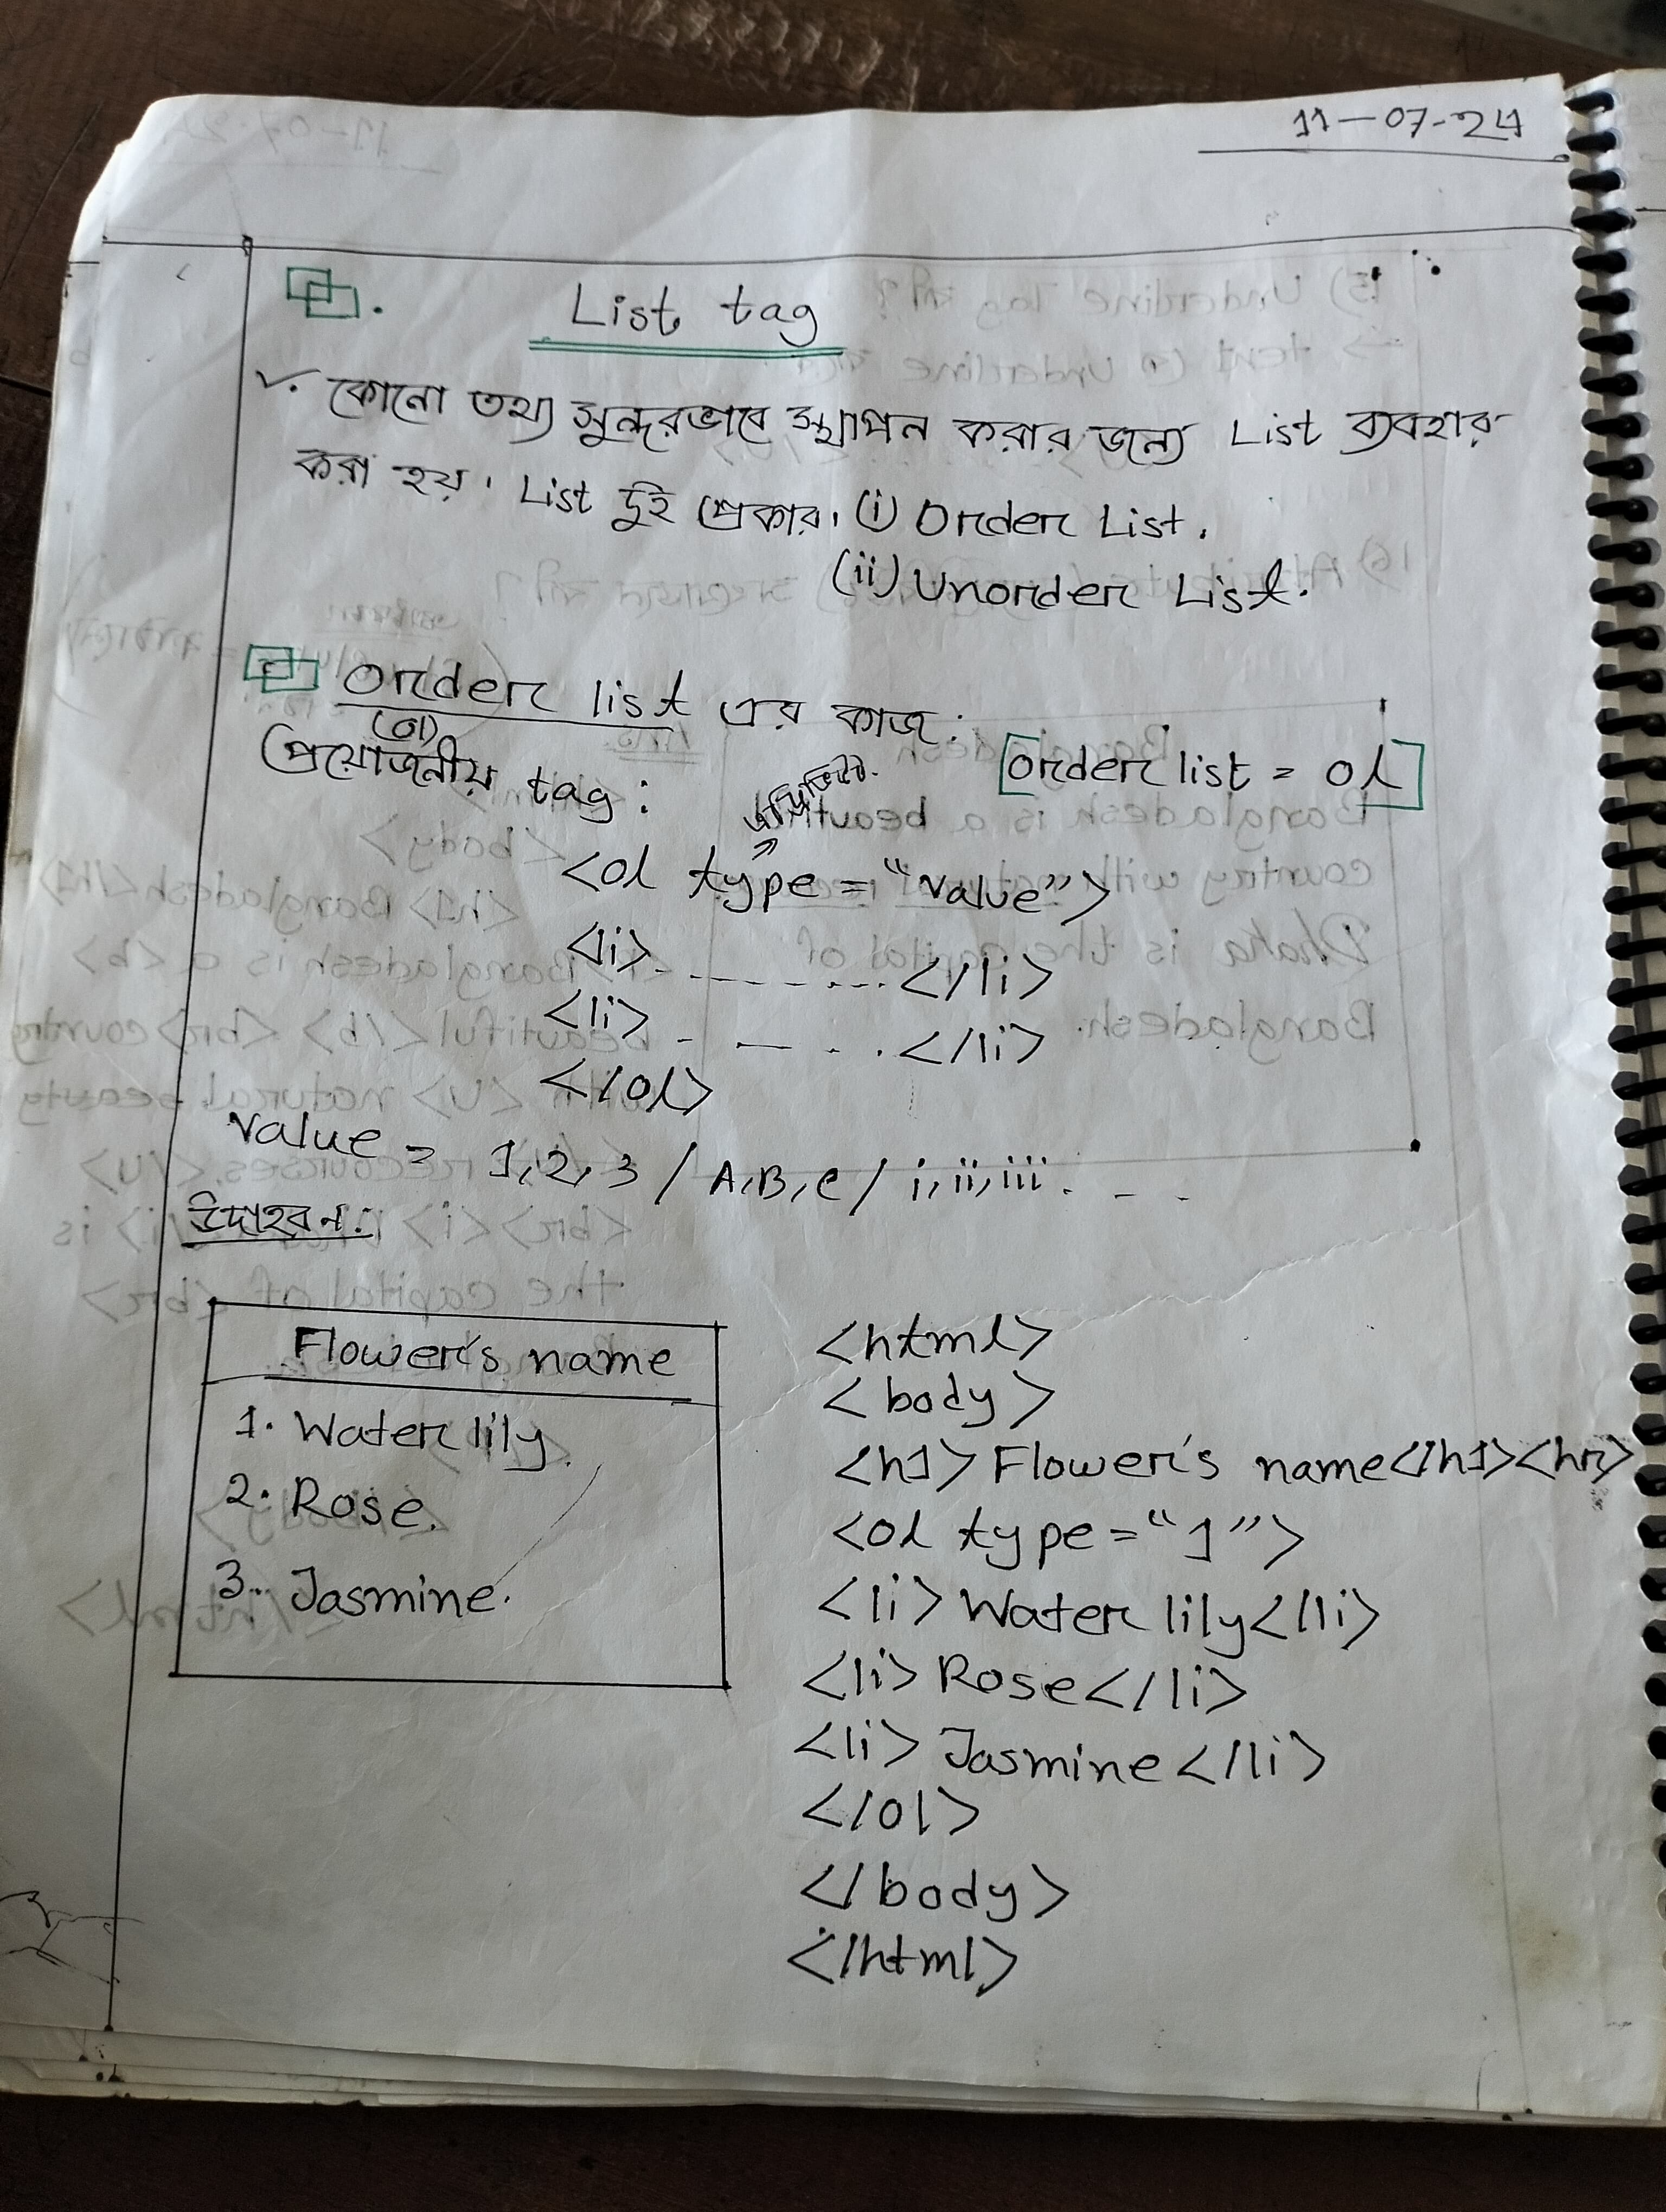 11-07-24
List tag
কোনো তথ্য সুন্দরভাবে স্থাপন করার জন্য List ব্যবহার
করা হয়। List দুই প্রকার। (i) Order List.
(ii) Unorder List.
Order list এর কাজ:
(ol)
প্রয়োজনীয় tag:
[Order list = ol]
<ol type = "value">
<li>- - - - - - - - - </li>
<li>. - — - . . </li>
</ol>
Value = 1, 2, 3 / A, B, C / i, ii, iii. - -
উদাহরন:
Flower's name
1. Water lily.
2. Rose.
3. Jasmine.
<html>
<body>
<h1> Flower's name</h1><hr>
<ol type = "1">
<li> Water lily</li>
<li> Rose</li>
<li> Jasmine</li>
</ol>
</body>
</html>